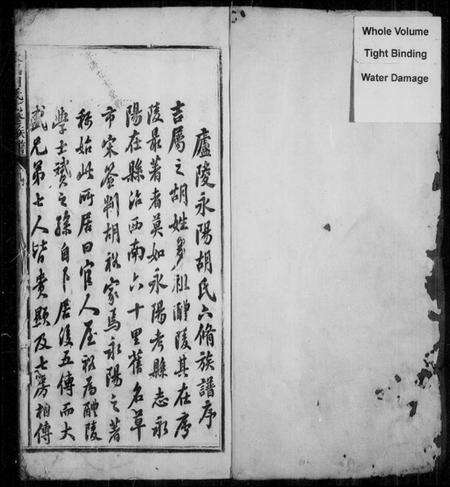 廬陵永陽胡氏六脩族譜序
吉屬之胡姓多祖醴陵其在序
陵最著者莫如永陽考縣志永
陽在縣治西南六十里舊名草
市宋簽判胡松家焉永陽之著
稱始此所居曰官人屋松為醴陵
學士贇之孫自卜居後五傳而大
盛兄弟七人皆貴顯及七房相傳
Whole Volume
Tight Binding
Water Damage